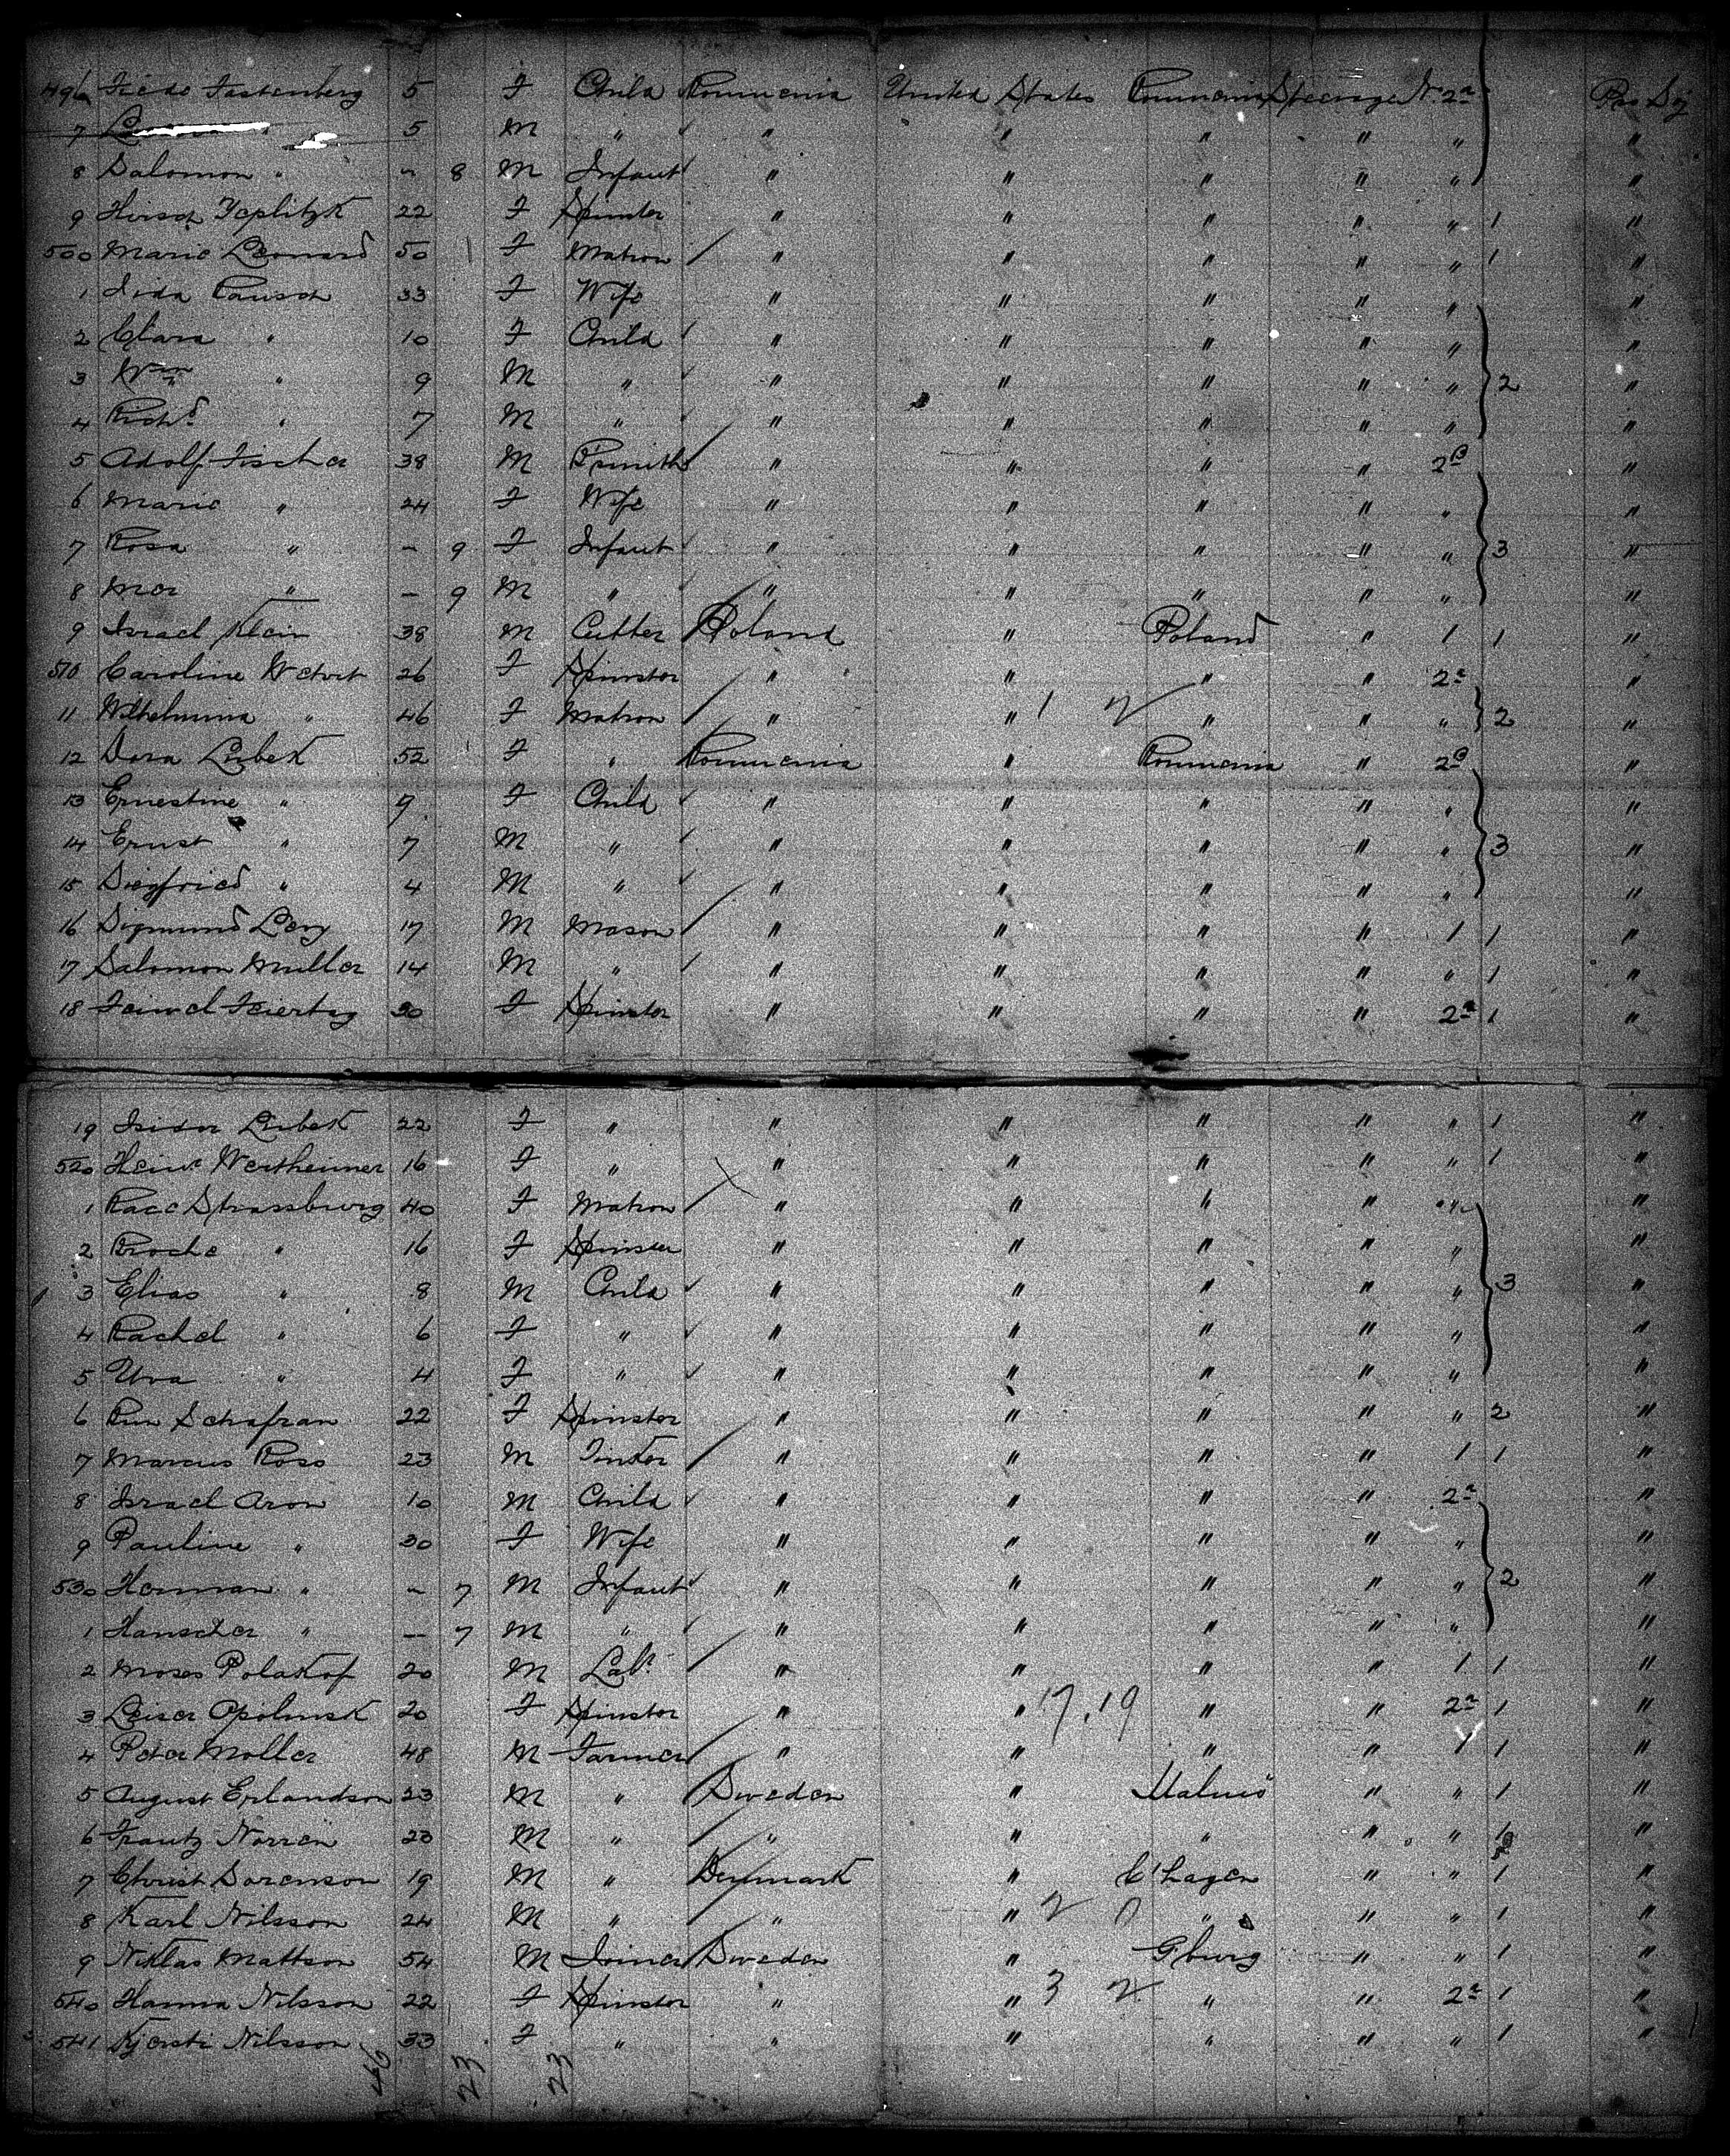 496 Fiede Fastenberg 5 F Child Roumania United States Roumania Steerage No 2a
7 5 M " " " " " " "
8 Salomon " - 8 M Infant " " " " " "
9 Hirsch Teplitzk 22 F Spinster " " " " " 1 "
500 Marie Leonard 50 F Matron " " " " " 1 "
1 Lida Rausch 33 F Wife " " " " " "
2 Clara " 10 F Child " " " " " "
3 Wm " 9 M " " " " " " 2 "
4 Richd " 7 M " " " " " " "
5 Adolf Fischer 38 M " " " " 2B "
6 Marie " 24 F Wife " " " " " "
7 Rosa " - 9 F Infant " " " " " 3 "
8 " - 9 M " " " " " " "
9 Israel Klein 38 M Cutter Poland " Poland " 1 1 "
510 Caroline 26 F Spinster " " " " 2a "
11 Wilhelmina " 46 F Matron " " 1 2 " " " 2 "
12 Dora Lubek 52 F " Roumania " Roumania " 2B "
13 Ernestine " 9 F Child " " " " " "
14 Ernst " 7 M " " " " " " 3 "
15 Siegfried " 4 M " " " " " " "
16 Sigmund Levy 17 M Mason " " " " 1 1 "
17 Salomon Muller 14 M " " " " " " 1 "
18 Feiwel Feiertag 30 F Spinster " " " " 2a 1 "
19 Isidor Lubek 22 F " " " " " " 1 "
520 Heinr Wertheimer 16 F " " " " " " 1 "
1 Strassburg 40 F Matron " " " " " "
2 Broche " 16 F Spinster " " " " " "
3 Elias " 8 M Child " " " " " 3 "
4 Rachel " 6 F " " " " " " "
5 " 4 F " " " " " " "
6 Schafran 22 F Spinster " " " " " 2 "
7 Marcus Ross 23 M Tinker " " " " 1 1 "
8 Israel Aron 10 M Child " " " " 2a "
9 Pauline " 30 F Wife " " " " " "
530 Herman " - 7 M Infant " " " " " 2 "
1 Hanscher " - 7 M " " " " " " "
2 Moses Polakof 20 M Labr " " " " 1 1 "
3 Leiser Opolinsk 20 F Spinster " " 17.19 " " 2a 1 "
4 Peter Moller 48 M Farmer " " " " 1 1 "
5 August Erlandson 23 M " Sweden " Malmö " " 1 "
6 Frantz Norren 23 M " " " " " " 1 "
7 Christ Sorenson 19 M " Denmark " C'hagen " " 1 "
8 Karl Nilsson 24 M " " " 2 0 " " " 1 "
9 Niklas Mattson 54 M Joiner Sweden " G'burg " " 1 "
540 Hanna Nilsson 22 F Spinster " " 3 2 " " 2a 1 "
541 Kjersti Nilsson 33 F " " " " " " 1 "
46 23 23